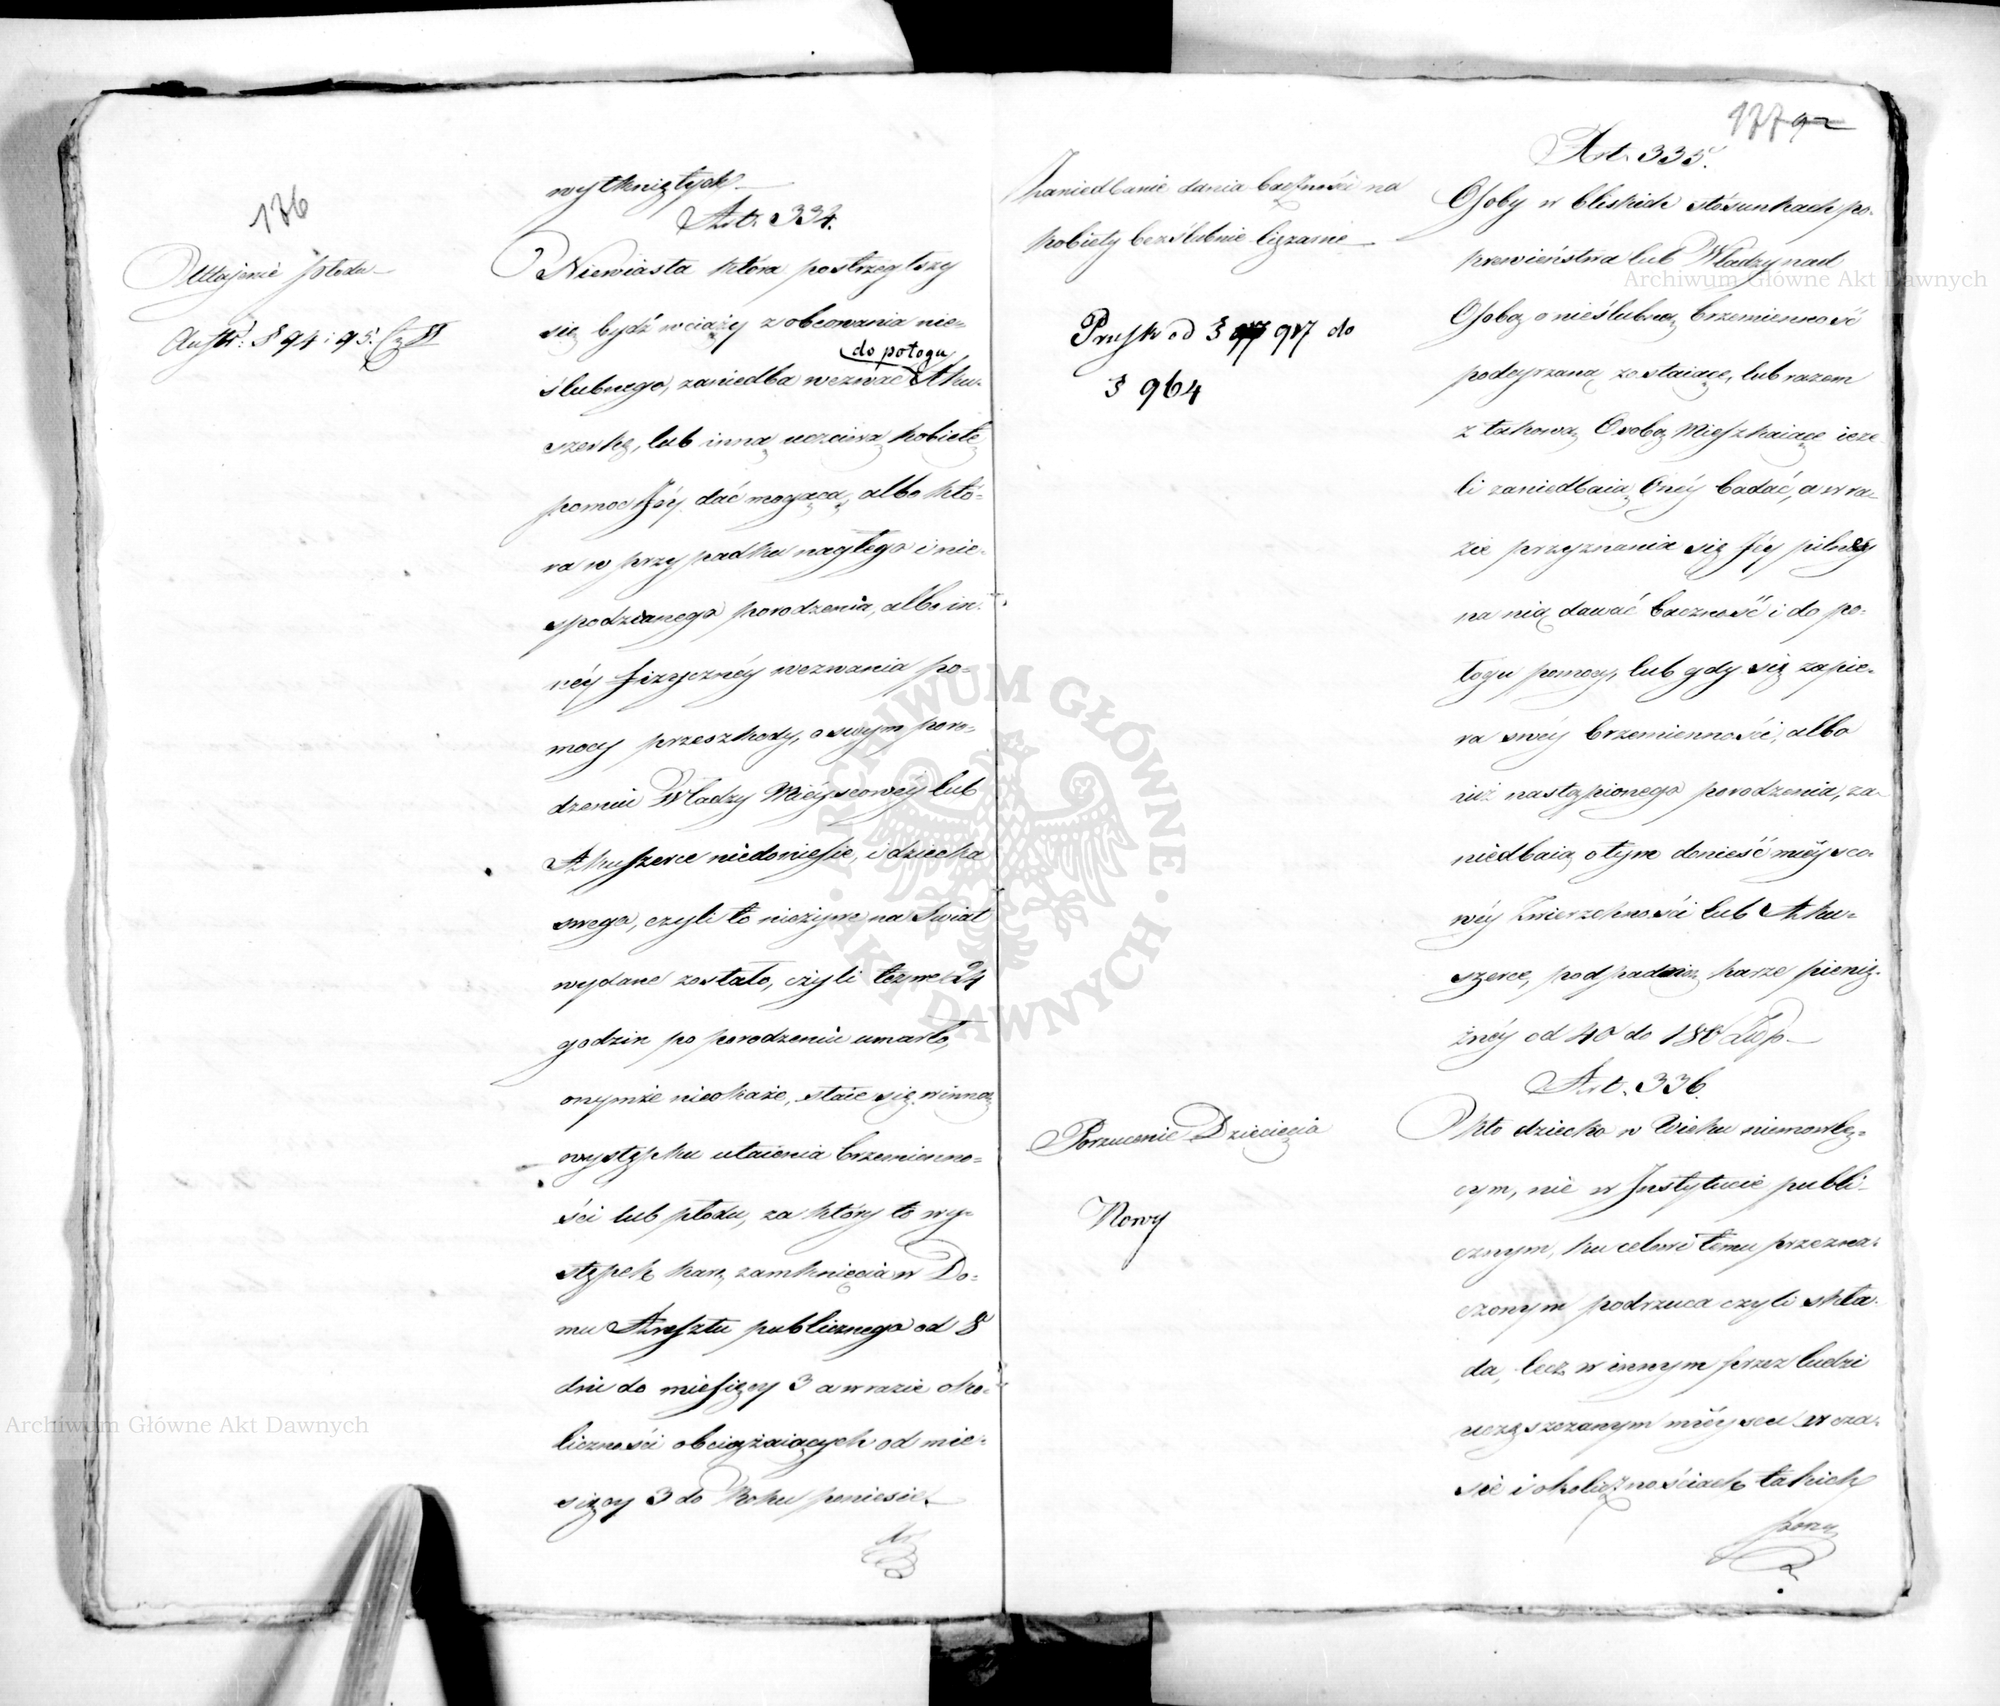 136
wytkniętych
Art. 334.
Utajenie płodu
Austr. § 94 i 95. Cz. II
Niewiasta która postrzegłszy
się bydź w ciąży z obcowania nie-
ślubnego, zaniedba wezwać do połogu Aku-
szerkę, lub inną uczciwą kobietę
pomoc Jéy dać mogącą, albo któ-
ra w przypadku nagłego i nie-
spodzianego porodzenia, albo in-
néy fizycznéy wezwania po-
mocy przeszkody, o swym poro-
dzeniu Władzy Miéyscowéy lub
Akuszerce niedoniesie, i dziecka
swego, czyli to nieżywe na Swiat
wydane zostało, czyli téż we 24
godzin po porodzeniu umarło,
onymże nieokaże, staie się winną
występku utaienia brzemienno-
ści lub płodu, za który to wy-
stępek karę zamknięcia w Do-
mu Aresztu publicznego od 8
dni do miesięcy 3 a w razie oko-
liczności obciążaiących od mie-
sięcy 3 do Roku poniesie.
137 92
Art. 335.
Zaniedbanie dania baczności na
kobiety bezślubnie ciężarne
Prusk od § 917 do
§ 964
Osoby w bliskich stósunkach po-
krewieństwa lub Władzy nad
Osobą o nieślubną brzemienność
podeyrzaną zostaiące, lub razem
z takową Osobą Mieszkaiące ieże-
li zaniedbaią Onéy badać, a w ra-
zie przyznania się Jéy pilnéy
na nią dawać baczność i do po-
łogu pomocy, lub gdy się zapie-
ra swéy brzemienności, albo
iuż nastąpionego porodzenia, za-
niedbaią o tym donieść miéysco-
wéy Zwierzchności lub Aku-
szerce, podpadaią karze pienię-
żnéy od 40 do 180 Złp.
Art. 336.
Porzucenie Dziecięcia
Nowy
Kto dziecko w Wieku niemowlę-
cym, nie w Instytucie publi-
cznym, ku celowi temu przezna-
czonym podrzuca czyli skła-
da, lecz w innym przez ludzi
uczęszczanym miéyscu w cza-
sie i okolicznościach takich